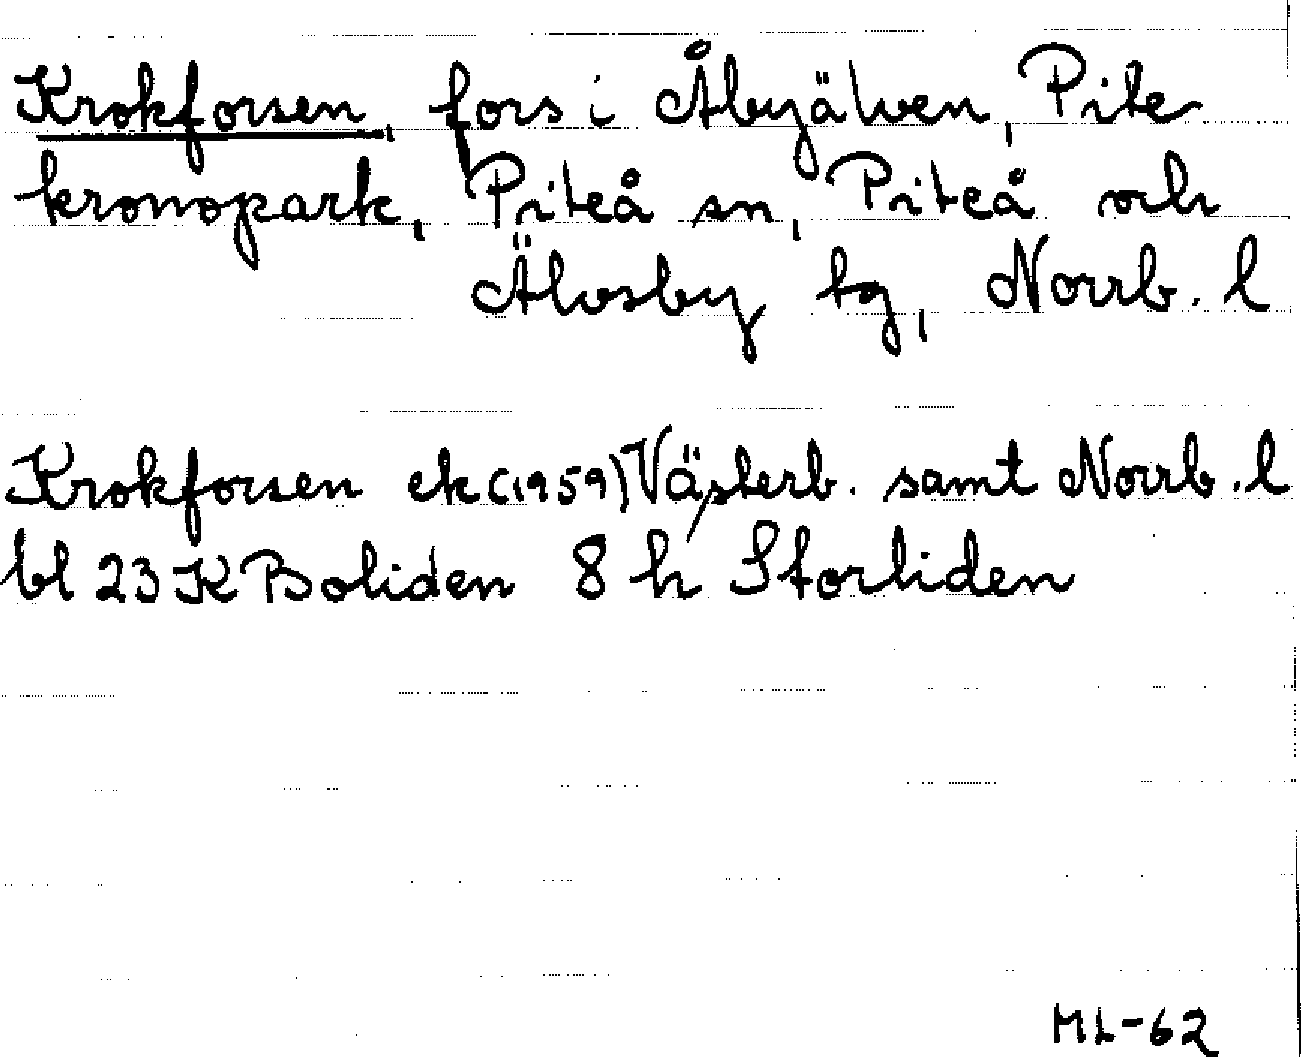 Krokforsen, fors i Åbyälven, Pite
kronopark, Piteå sn, Piteå och
Älvsby tg, Norrb. l
Krokforsen ek (1959) Västerb. samt Norrb. l
bl 23 K Boliden 8 h Storliden
ML-62